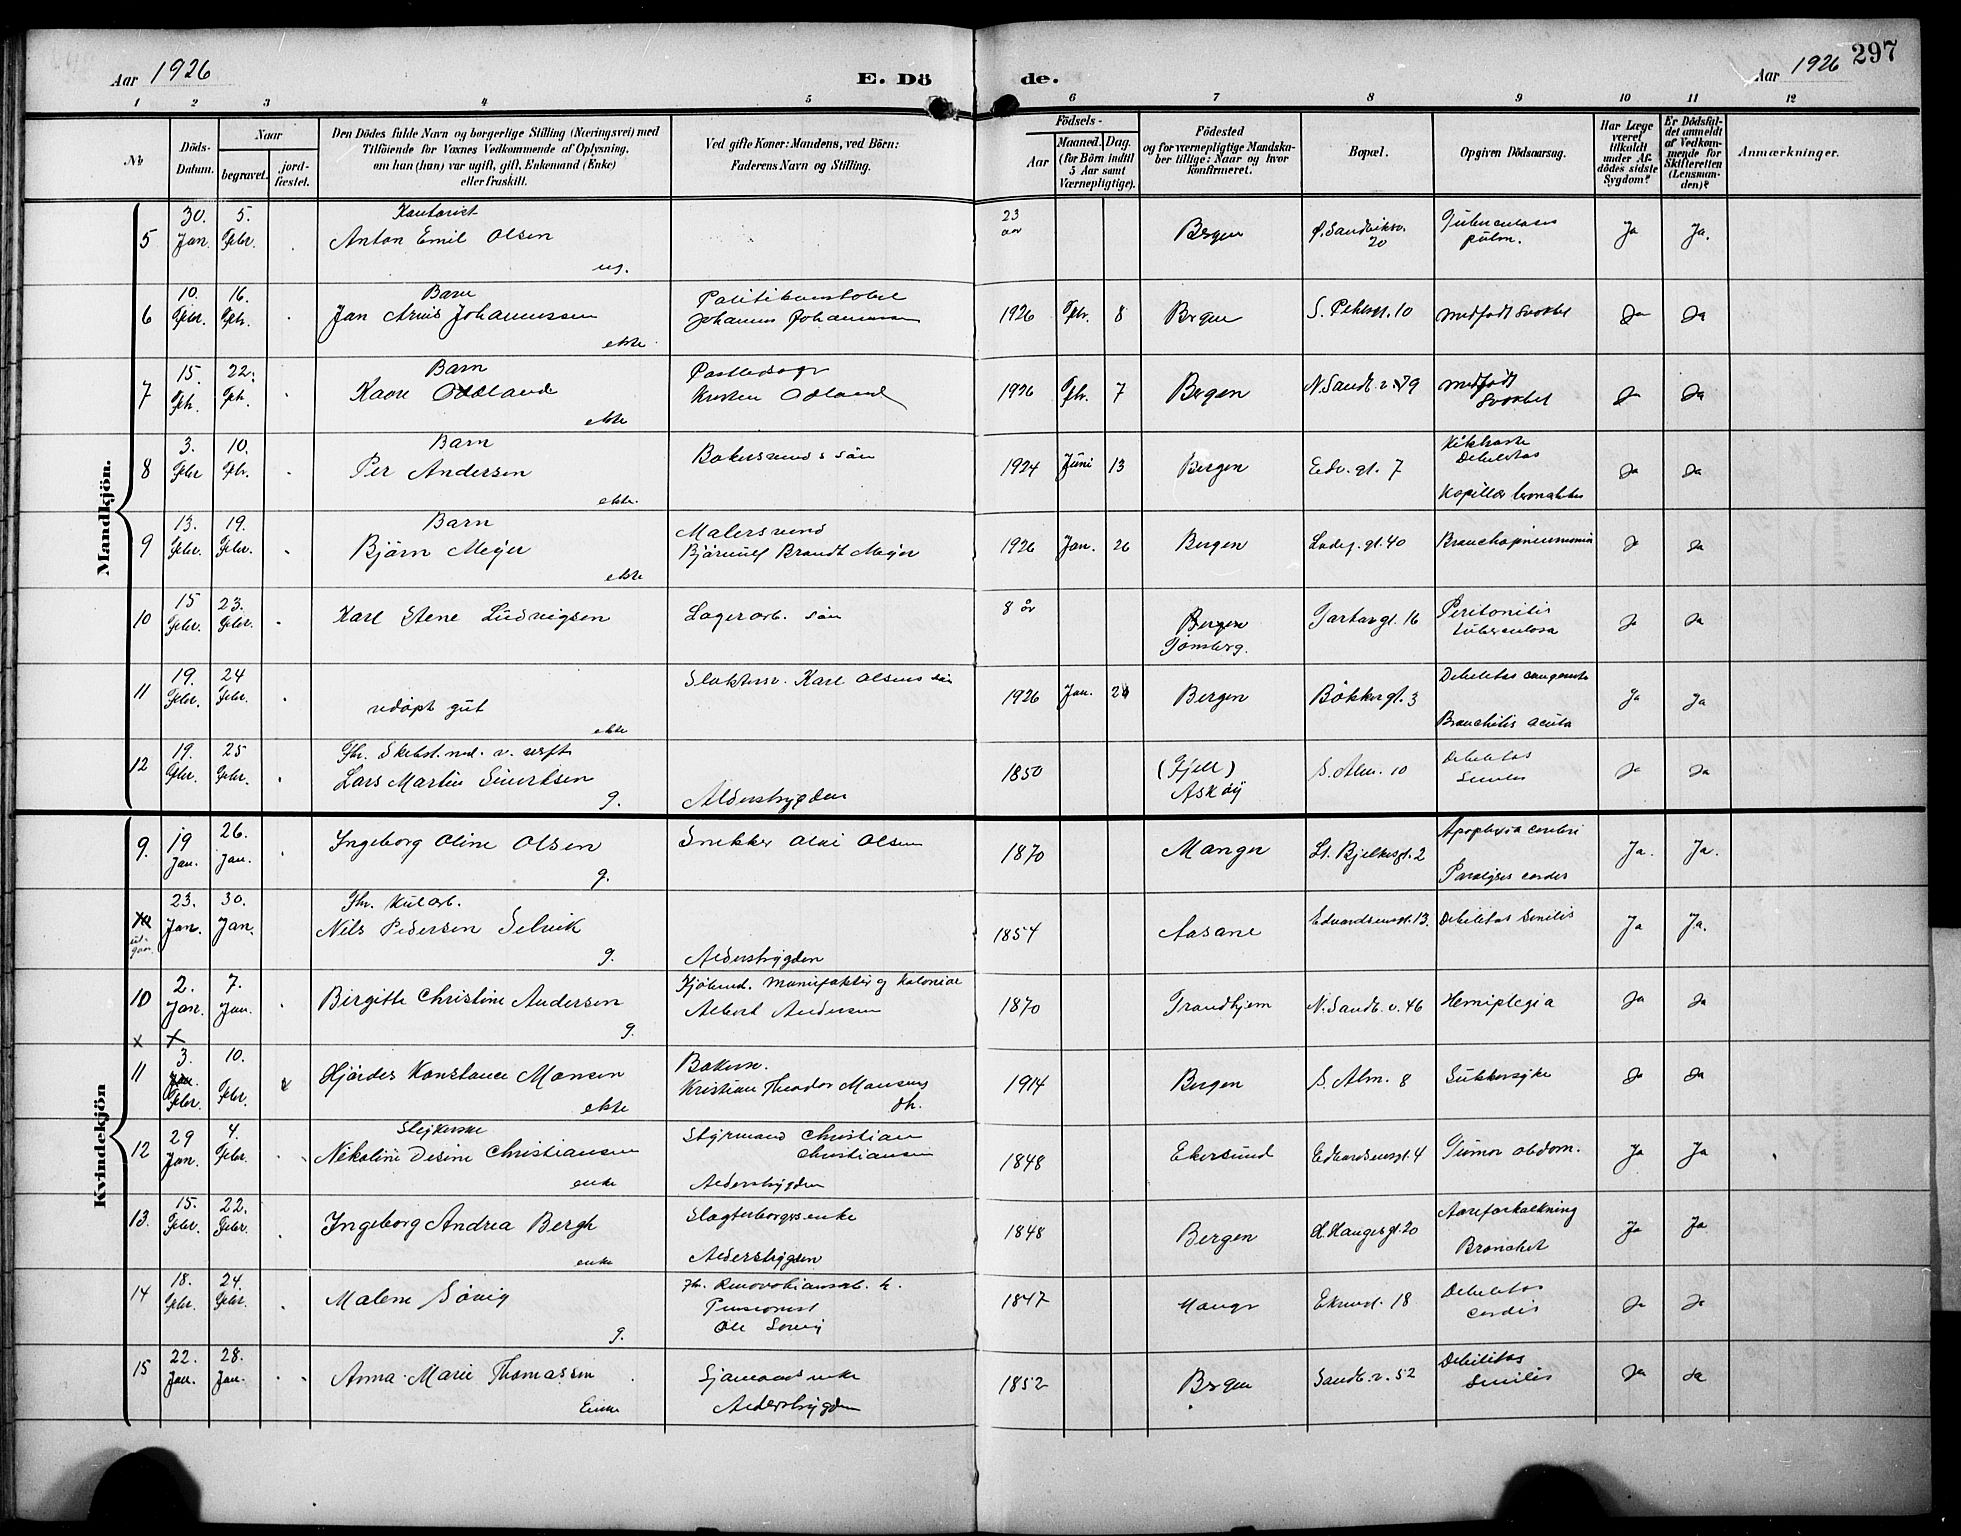 Aar 1926
E. Dö de.
Aar 1926
297
1 2 3 4 5 6 7 8 9 10 11 12
No
Döds-Datum.
Naar
begravet.
jord-fæstet.
Den Dödes fulde Navn og borgerlige Stilling (Næringsvei) med
Tilföiende for Voxnes Vedkommende af Oplysning,
om han (hun) var ugift, gift, Enkemand (Enke)
eller fraskilt.
Ved gifte Koner: Mandens, ved Börn:
Faderens Navn og Stilling.
Födsels-
Aar
Maaned. Dag.
(for Börn indtil
5 Aar samt
Værnepligtige).
Födested
og for værnepligtige Mandska-
ber tillige: Naar og hvor
konfirmeret.
Bopæl.
Opgiven Dödsaarsag.
Har Læge
været
tilkaldt
under Af-
dödes sidste
Sygdom?
Er Dödsfal-
det anmeldt
af Vedkom-
mende for
Skifteretten
(Lensman-
den)?
Anmærkninger.
Mandkjön.
5 30. Jan. 5. Febr. Kontorist
Anton Emil Olsen
ug.
23 aar Bergen Ø. Sandviksv. 20 Tuberculosis pulm. Ja Ja.
6 10. Febr. 16. Febr. Barn
Jan Arnis Johannessen
ekte
Politikonstabel
Johannes Johannessen
1926 Febr. 8 Bergen S. Petersgt. 10 medfødt svakhet Ja Ja
7 15. Febr. 22. Febr. Barn
Kaare Odland
ekte
Kristen Odland
1926 Febr. 7 Bergen N. Sandv. v. 79 medfødt svakhet Ja Ja
8 3. Febr 10. Febr. Barn
Per Andersen
ekte.
Bakersvends søn
1924 Juni 13 Bergen Edv. gt. 7 Kikhoste
Debilitas
Kapillær bronchitis Ja Ja
9 13. Febr. 19. Febr. Barn
Bjørn Meyer
ekte
Malersvend
Bjørnulf Brandt Meyer
1926 Jan. 26 Bergen Ladeg. gt. 40 Bronchopneumonia Ja Ja
10 15 Febr. 23. Febr.
Karl Stene Ludvigsen
Lagerarb. søn
8 år Bergen
Tønsberg.
Gartnergt. 16 Peritonitis
tuberculosa Ja Ja
11 19. Febr. 24 Febr.
udøpt gut
ekte
Slaktersv. Karl Olsens søn
1926 Jan. Bergen Bøkkergt. 3 Debilitas congenita
Bronchitis acuta Ja Ja
12 19. Febr. 25 Febr.
Lars Martin Sivertsen
g.
Alderstrygden
1850 (Fjell)
Askøy
S. Alm. 10 Debilitas
Senilis Ja Ja
Kvindekjön
9. 19 Jan. 26. Jan.
Ingeborg Oline Olsen
g.
Snekker Olai Olsen
1870 Manger Lt. Bjelkesgt. 2 Apoplexia cerebri
Paralysis cordis Ja. Ja.
ud-gaar 23. Jan. 30. Jan. Fhv. Kularb.
Nils Pedersen Selvik
g.
Alderstrygden
1854 Aasane Edvardsensgt. 13. Debilitas Senilis Ja Ja.
10 2. Jan. 7. Jan.
Birgitte Christine Andersen
g.
Kjøbmd. Manufaktur og Kolonial
Albert Andersen
1870 Trondhjem N. Sandv. v. 46 Hemiplegia Ja Ja
x x
11 3. Febr. 10. Febr.
Hjørdis Konstance Monsen
ekte
Bakersv.
Kristian Theodor Monsens
dtr.
1914 Bergen S. Alm. 8 Sukkersyke Ja Ja
12 29 Jan. 4. Febr. Slejkerske
Nikoline Desine Christiansen
enke
Styrmand Christian
Christiansen
Alderstrygden
1848 Ekersund Edvardsensgt. 4 Tumor abdom. Ja Ja
13. 15. Febr. 22. Febr.
Ingeborg Andrea Bergh
enke
Slagterborgs enke
Alderstrygden
1848 Bergen H. Haugesgt. 20 Aareforkalkning
Bronchit Ja Ja
14 18. Febr. 24. Febr.
Malene Søvig
g.
Fh. Renovationsarb. h.
Pensionist
Ole Søvig
1847 Manger Eknesd. 18 Debilitas
cordis Ja Ja
15 22. Jan. 28. Jan.
Anna Marie Thomassen
Enke
Sjømands enke
Alderstrygden
1852 Bergen Sandv. v. 52 Debilitas
Senilis Ja Ja